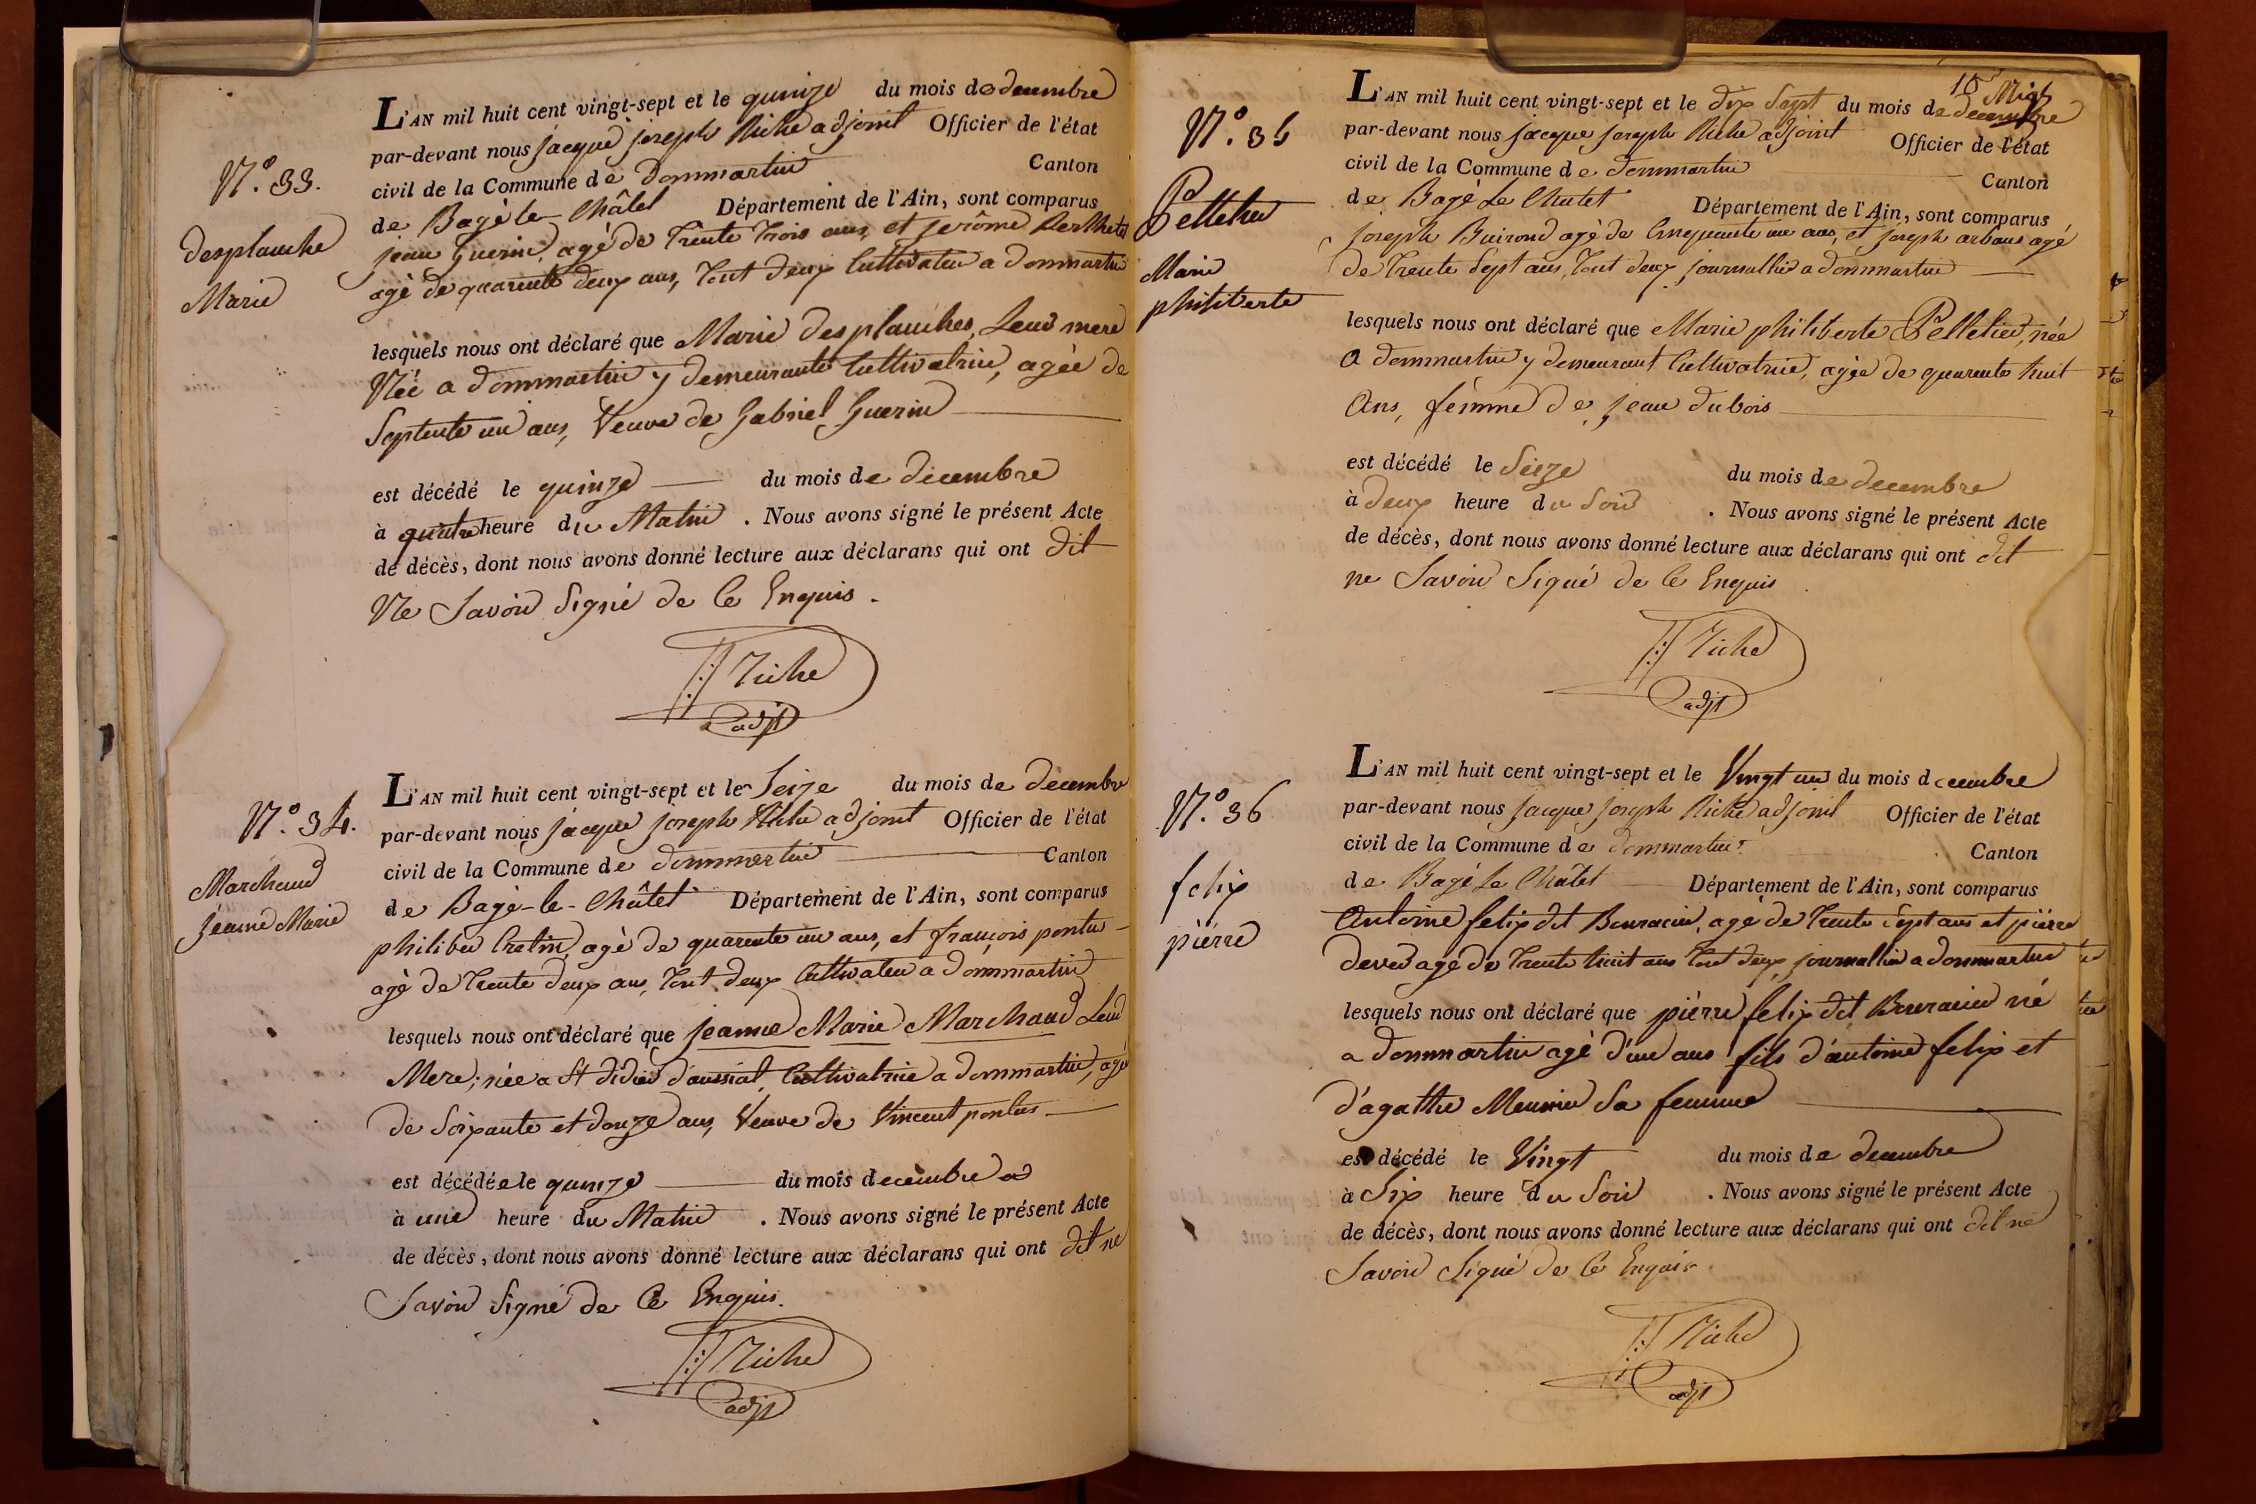 N.º 33.
desplanche
Marie
L'AN mil huit cent vingt-sept et le quinze du mois de decembre
par-devant nous jacque joseph Riche adjoint Officier de l'état
civil de la Commune de dommartin Canton
de Bagé le Châtel Département de l'Ain, sont comparus
jean Guerin, agé de trente trois ans, et jerôme Berthet
agé de quarente deux ans, tout deux Cultivateu a dommartin
lesquels nous ont déclaré que Marie desplanches, Leur mere
Née a dommartin y demeurante Cultivatrice, agée de
Septente un ans, Veuve de Gabriel Guerin
est décédé le quinze du mois de decembre
à quatre heure du Matin . Nous avons signé le présent Acte
de décès, dont nous avons donné lecture aux déclarans qui ont dit
Ne Savoir Signé de Ce Enquis.
Riche
adjt
N.º 34.
Marchand
jeanne Marie
L'AN mil huit cent vingt-sept et le Seize du mois de decembre
par-devant nous jacque joseph Riche adjoint Officier de l'état
civil de la Commune de dommartin Canton
de Bagé-le-Châtel Département de l'Ain, sont comparus
philiber Cretin, agé de quarente un ans, et françois pontu
agé de trente deux ans, tout deux Cultivateu a dommartin
lesquels nous ont déclaré que jeanne Marie Marchand Leur
Mere, née a St didier d'aussiat, Cultivatrice a dommartin, agé
de Soixante et douze ans, Veuve de Vincent pontus
est décédée le quinze du mois decembre
à une heure du Matin . Nous avons signé le présent Acte
de décès, dont nous avons donné lecture aux déclarans qui ont dit ne
Savoir Signé de Ce Enquis.
Riche
adjt
N.º 35
Pelletier
Marie
philiberte
L'AN mil huit cent vingt-sept et le dix Sept du mois de decembre
par-devant nous jacque joseph Riche adjoint Officier de l'état
civil de la Commune de dommartin Canton
de Bagé Le Chatel Département de l'Ain, sont comparus
joseph Buirond agé de Cinquante un ans, et joseph arbans agé
de trente Sept ans, tout deux journallié a dommartin
lesquels nous ont déclaré que Marie philiberte Pelletier, née
a dommartin y demeurant Cultivatrice, agée de quarente huit
Ans, femme de jean dubois
est décédé le Seize du mois de decembre
à deux heure du Soir . Nous avons signé le présent Acte
de décès, dont nous avons donné lecture aux déclarans qui ont dit
ne Savoir Signé de Ce Enquis
Riche
adjt
N.º 36
felix
pierre
L'AN mil huit cent vingt-sept et le Vingt un du mois decembre
par-devant nous jacque joseph Riche adjoint Officier de l'état
civil de la Commune de dommartin Canton
de Bagé Le Châtel Département de l'Ain, sont comparus
Antoine felix dit agé de trente Sept ans et pierre
agé de trente huit ans tout deux journallié a dommartin
lesquels nous ont déclaré que pierre felix dit né
a dommartin agé d'un ans fils d'antoine felix et
d'agathe Meunier Sa femme
est décédé le Vingt du mois de decembre
à Six heure du Soir . Nous avons signé le présent Acte
de décès, dont nous avons donné lecture aux déclarans qui ont dit ne
Savoir Signé de Ce Enquis
Riche
adjt